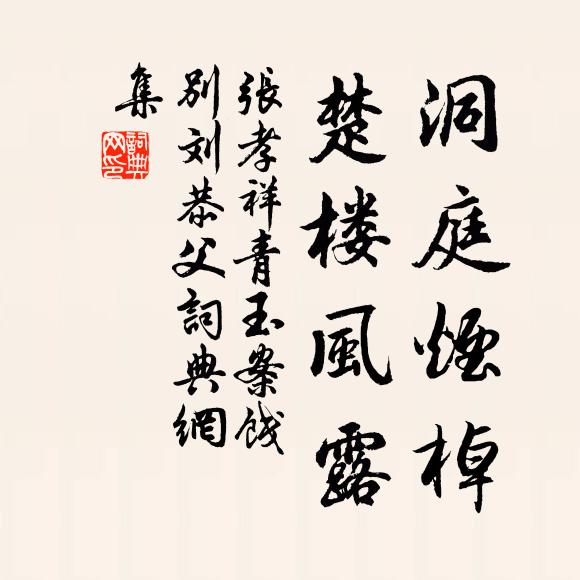 洞庭烟棹
楚楼風露
張孝祥青玉案餞
别刘恭父詞典網
集
詞典網印